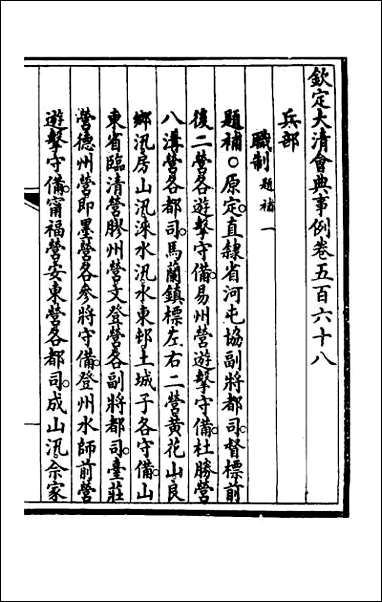 欽定大清會典事例卷五百六十八
兵部
職制題補一
題補○原定直隸省河屯協副將都司督標前
後二營各遊擊守備易州營遊擊守備杜勝營
八溝營各都司馬蘭鎮標左右二營黃花山良
鄉汛房山汛淶水汛水東邨土城子各守備山
東省臨清營膠州營文登營各副將都司臺莊
營德州營即墨營各參將守備登州水師前營
遊擊守備甯福營安東營各都司成山汛佘家